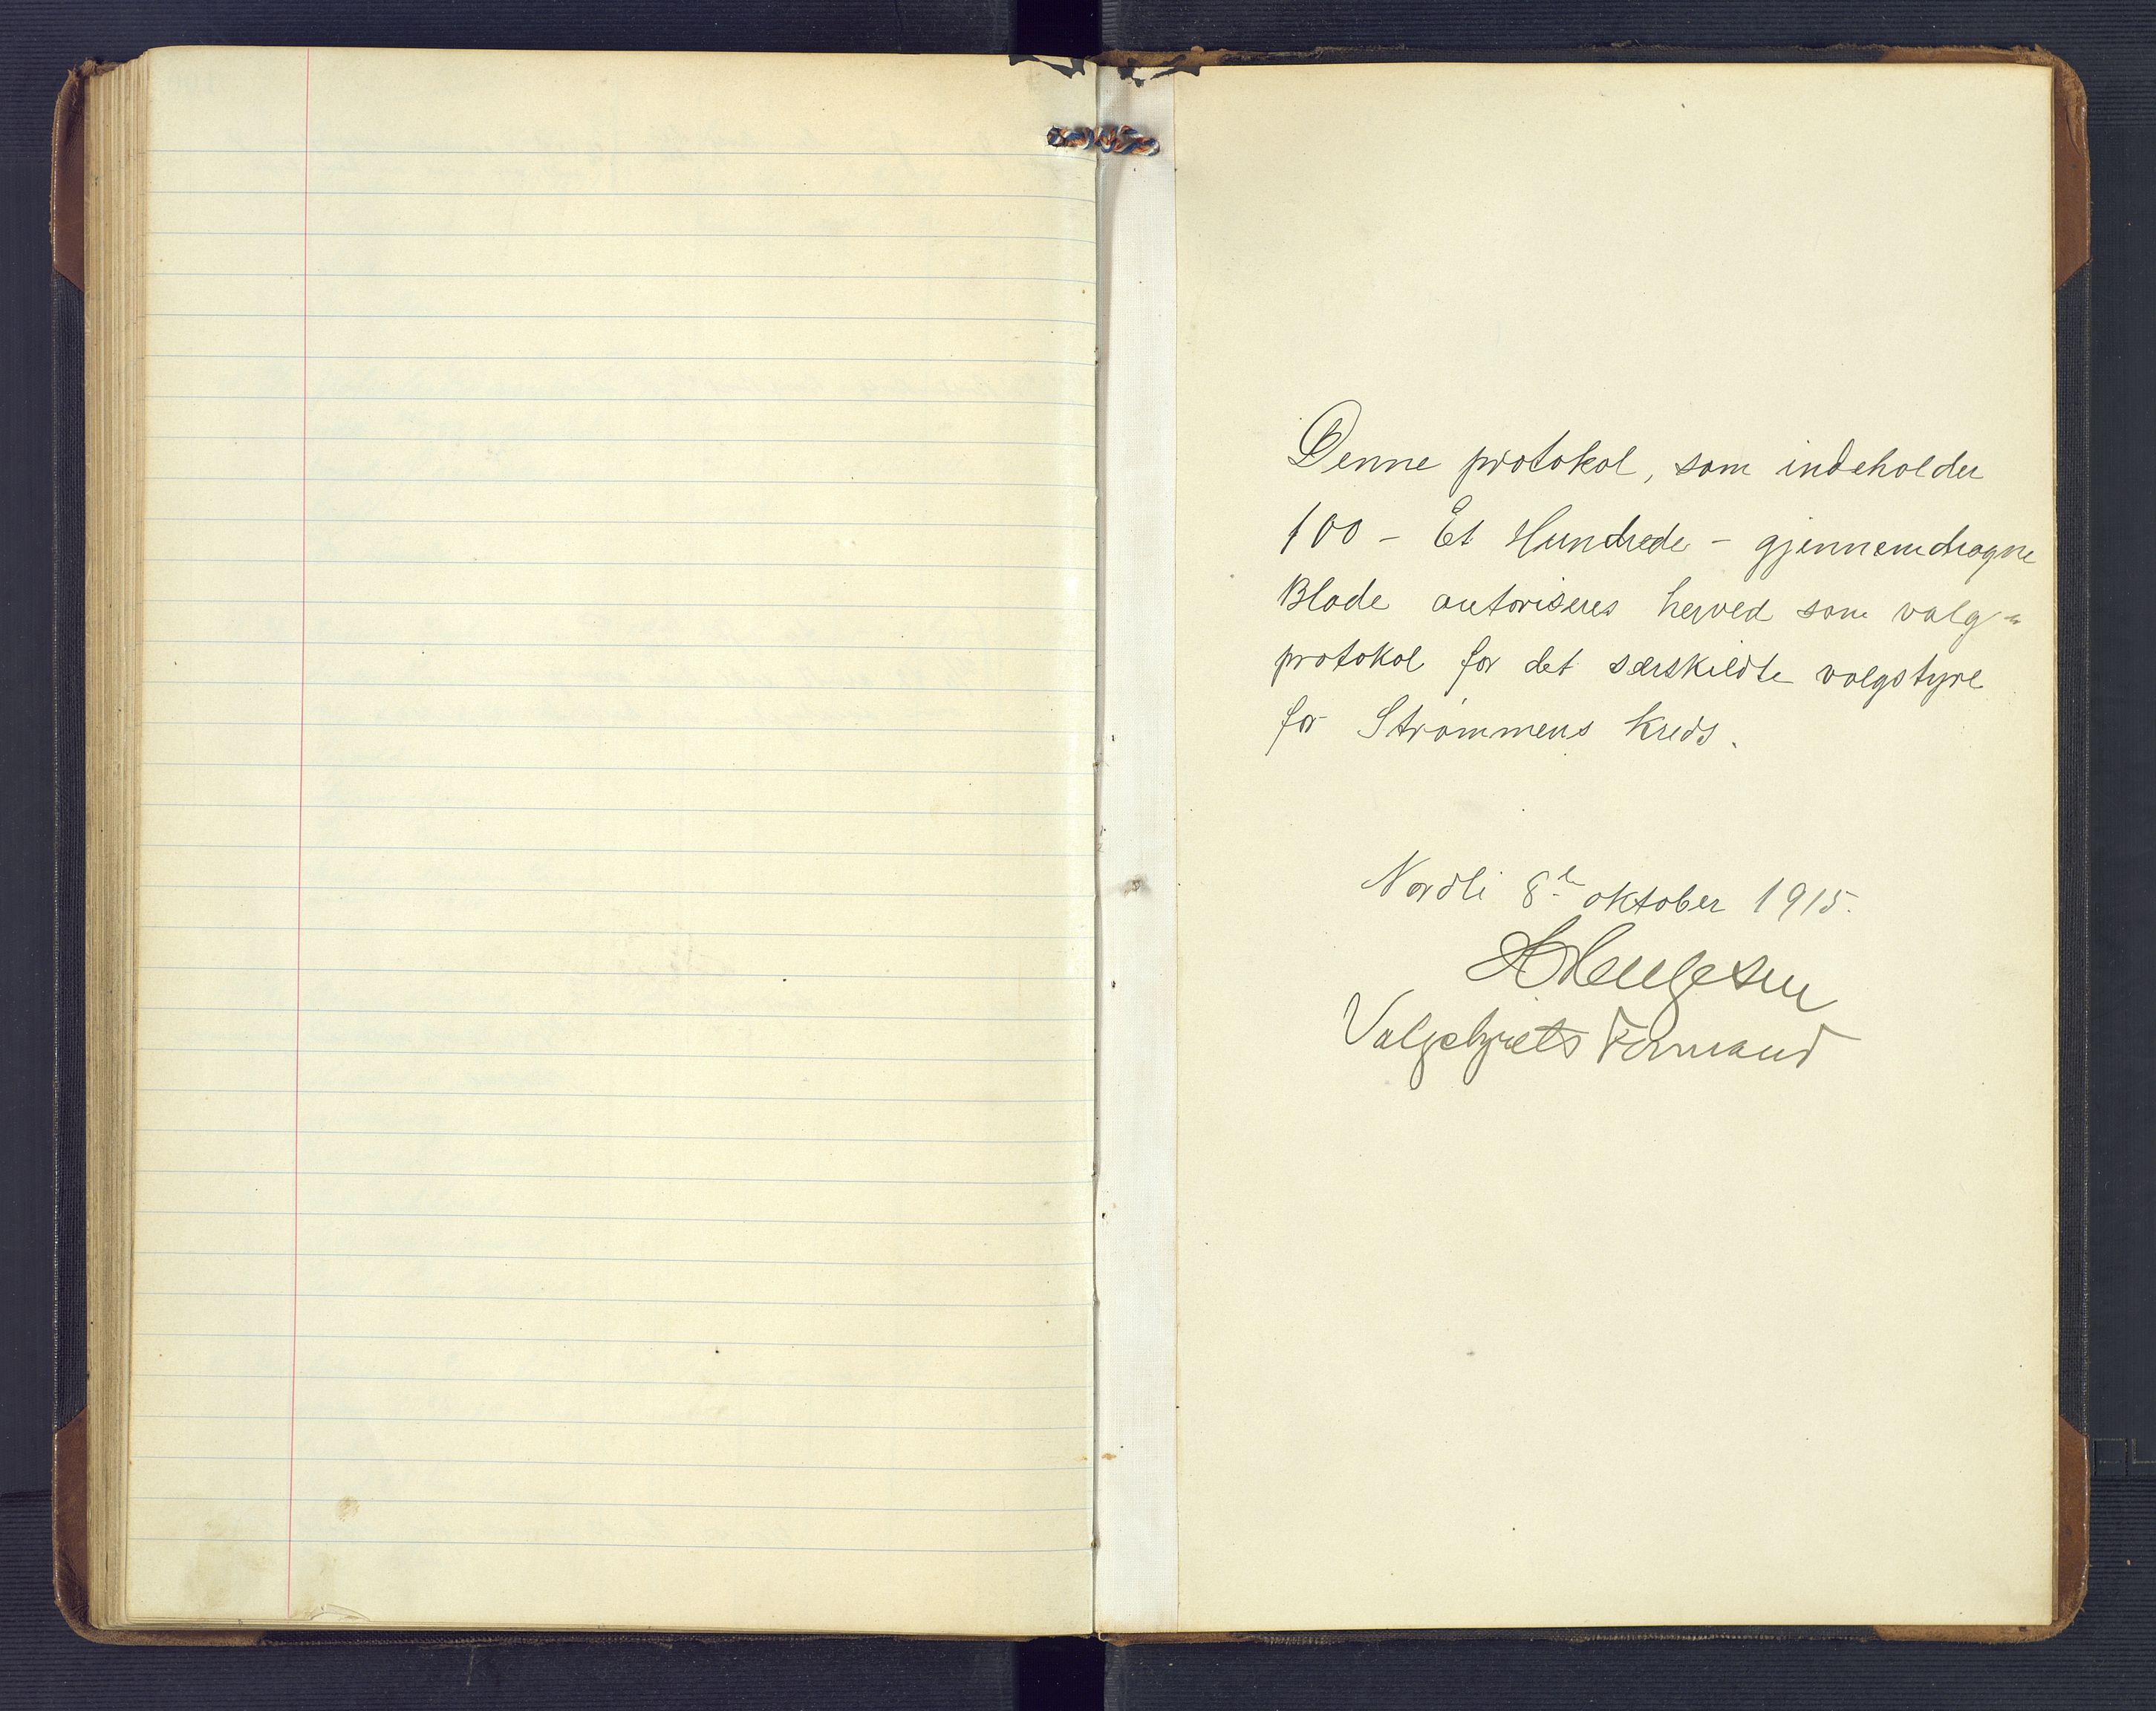 Denne protokol, som indeholder
100 - Et Hundrede - gjennemdragne
Blade autoriseres herved som valg-
protokol for det særskildte valgstyre
for Strømmens Kreds.
Nordli 8de oktober 1915.
Valgstyrets Formand